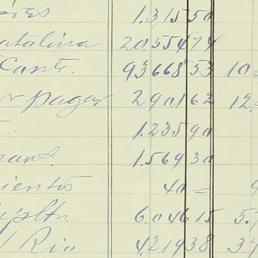 1.315 50
atalina 20.554 74
Cants. 93.668 53 10
or pagar 2.901 62 12.
1.235 90
and. 1.569 30
ientos 40 –
6.046 15 5.7
l Rio 4.219 38 37